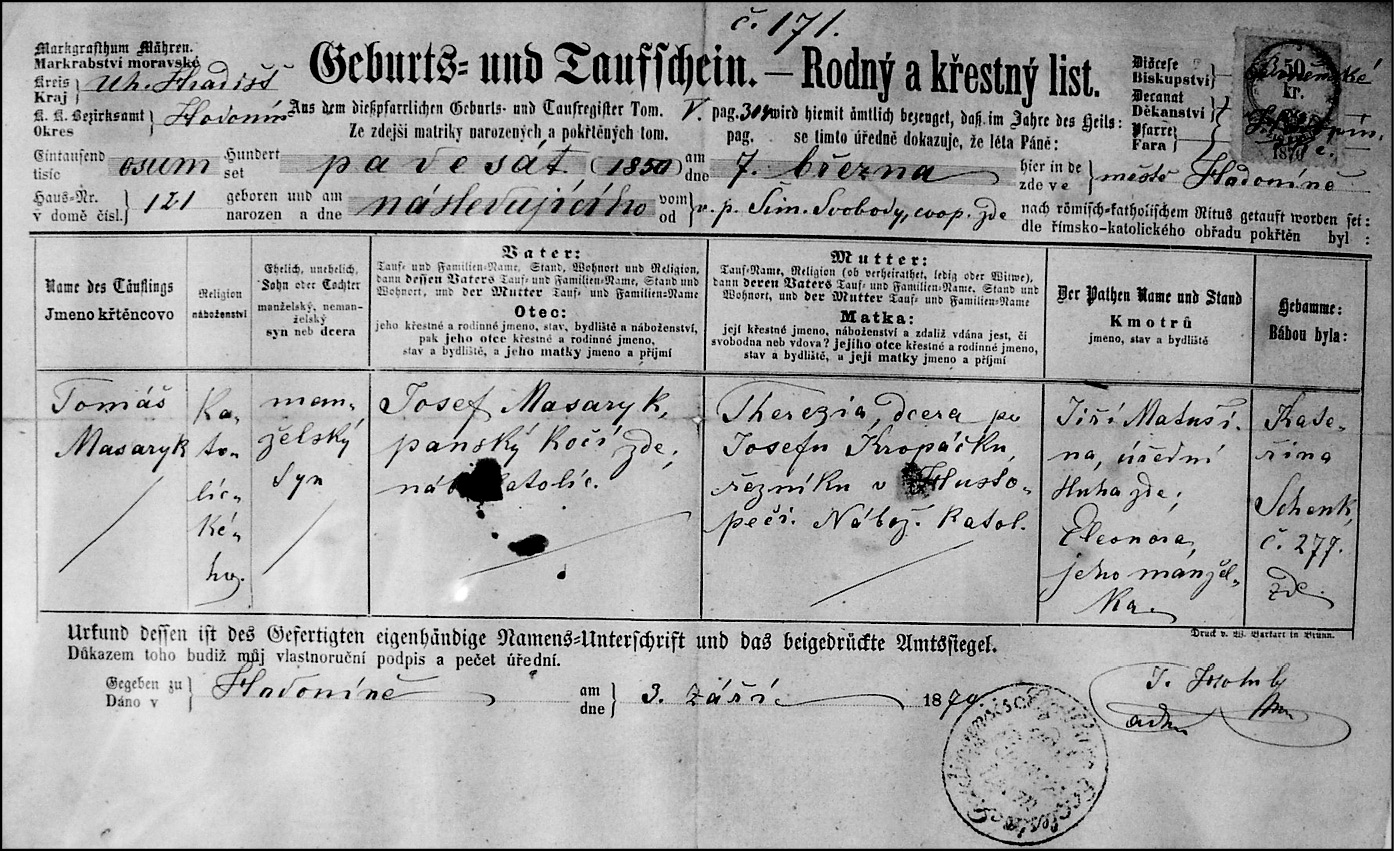 č. 171.
Markgrafthum Mähren.
Markrabství moravské
Kreis
Kraj } Uh. Hradišť
K. K. Bezirksamt
Okres } Hodonín
Geburts- und Taufschein. — Rodný a křestný list.
Aus dem dießpfarrlichen Geburts- und Taufregister Tom. V. pag. 304 wird hiemit ämtlich bezeuget, daß im Jahre des Heils:
Ze zdejší matriky narozených a pokřtěných tom. pag. se tímto úředně dokazuje, že léta Páně:
Diöcese
Biskupství }
Decanat
Děkanství }
Pfarre
Fara }
50
kr.
1870
Eintausend
tisíc osum Hundert
set padesát (1850) am
dne } 7. března hier in de
zde ve } městě Hodoníně
Haus-Nr.
v domě čísl. } 121 geboren und am
narozen a dne } následujícího vom
od } v. p. Šim. Svobody, coop. zde nach römisch-katholischem Ritus getauft worden sei:
dle římsko-katolického obřadu pokřtěn byl :
Name des Täuflings
Jmeno křtěncovo
Religion
náboženství
Ehelich, unehelich,
Sohn oder Tochter
manželský, neman-
želský
syn neb dcera
Vater:
Tauf- und Familien-Name, Stand, Wohnort und Religion,
dann dessen Vaters Tauf- und Familien-Name, Stand und
Wohnort, und der Mutter Tauf- und Familien-Name
Otec:
jeho křestné a rodinné jmeno, stav, bydliště a náboženství,
pak jeho otce křestné a rodinné jmeno,
stav a bydliště, a jeho matky jmeno a příjmí
Mutter:
Tauf-Name, Religion (ob verheirathet, ledig oder Witwe),
dann deren Vaters Tauf- und Familien-Name, Stand und
Wohnort, und der Mutter Tauf- und Familien-Name
Matka:
její křestné jmeno, náboženství a zdaliž vdána jest, či
svobodna neb vdova? jejího otce křestné a rodinné jmeno,
stav a bydliště, a její matky jmeno a příjmí
Der Pathen Name und Stand
Kmotrů
jmeno, stav a bydliště
Hebamme:
Bábou byla:
Tomáš
Masaryk
Ka-
to-
lic-
ké-
ho.
man-
želský
syn
Josef Masaryk,
panský kočí zde,
katolic.
Therezia, dcera po
Josefu Kropáčku,
řezníku v Husto-
peči. Nábož. katol.
Jiří Matuši-
na, úřední
sluha zde;
Eleonora,
jeho manžel-
ka.
Kate-
řina
Schenk,
č. 277.
zde.
Urkund dessen ist des Gefertigten eigenhändige Namens-Unterschrift und das beigedrückte Amtssiegel.
Důkazem toho budiž můj vlastnoruční podpis a pečet úřední.
Druck v. W. Burkart in Brünn.
Gegeben zu
Dáno v } Hodoníně am
dne } 3. září 1870